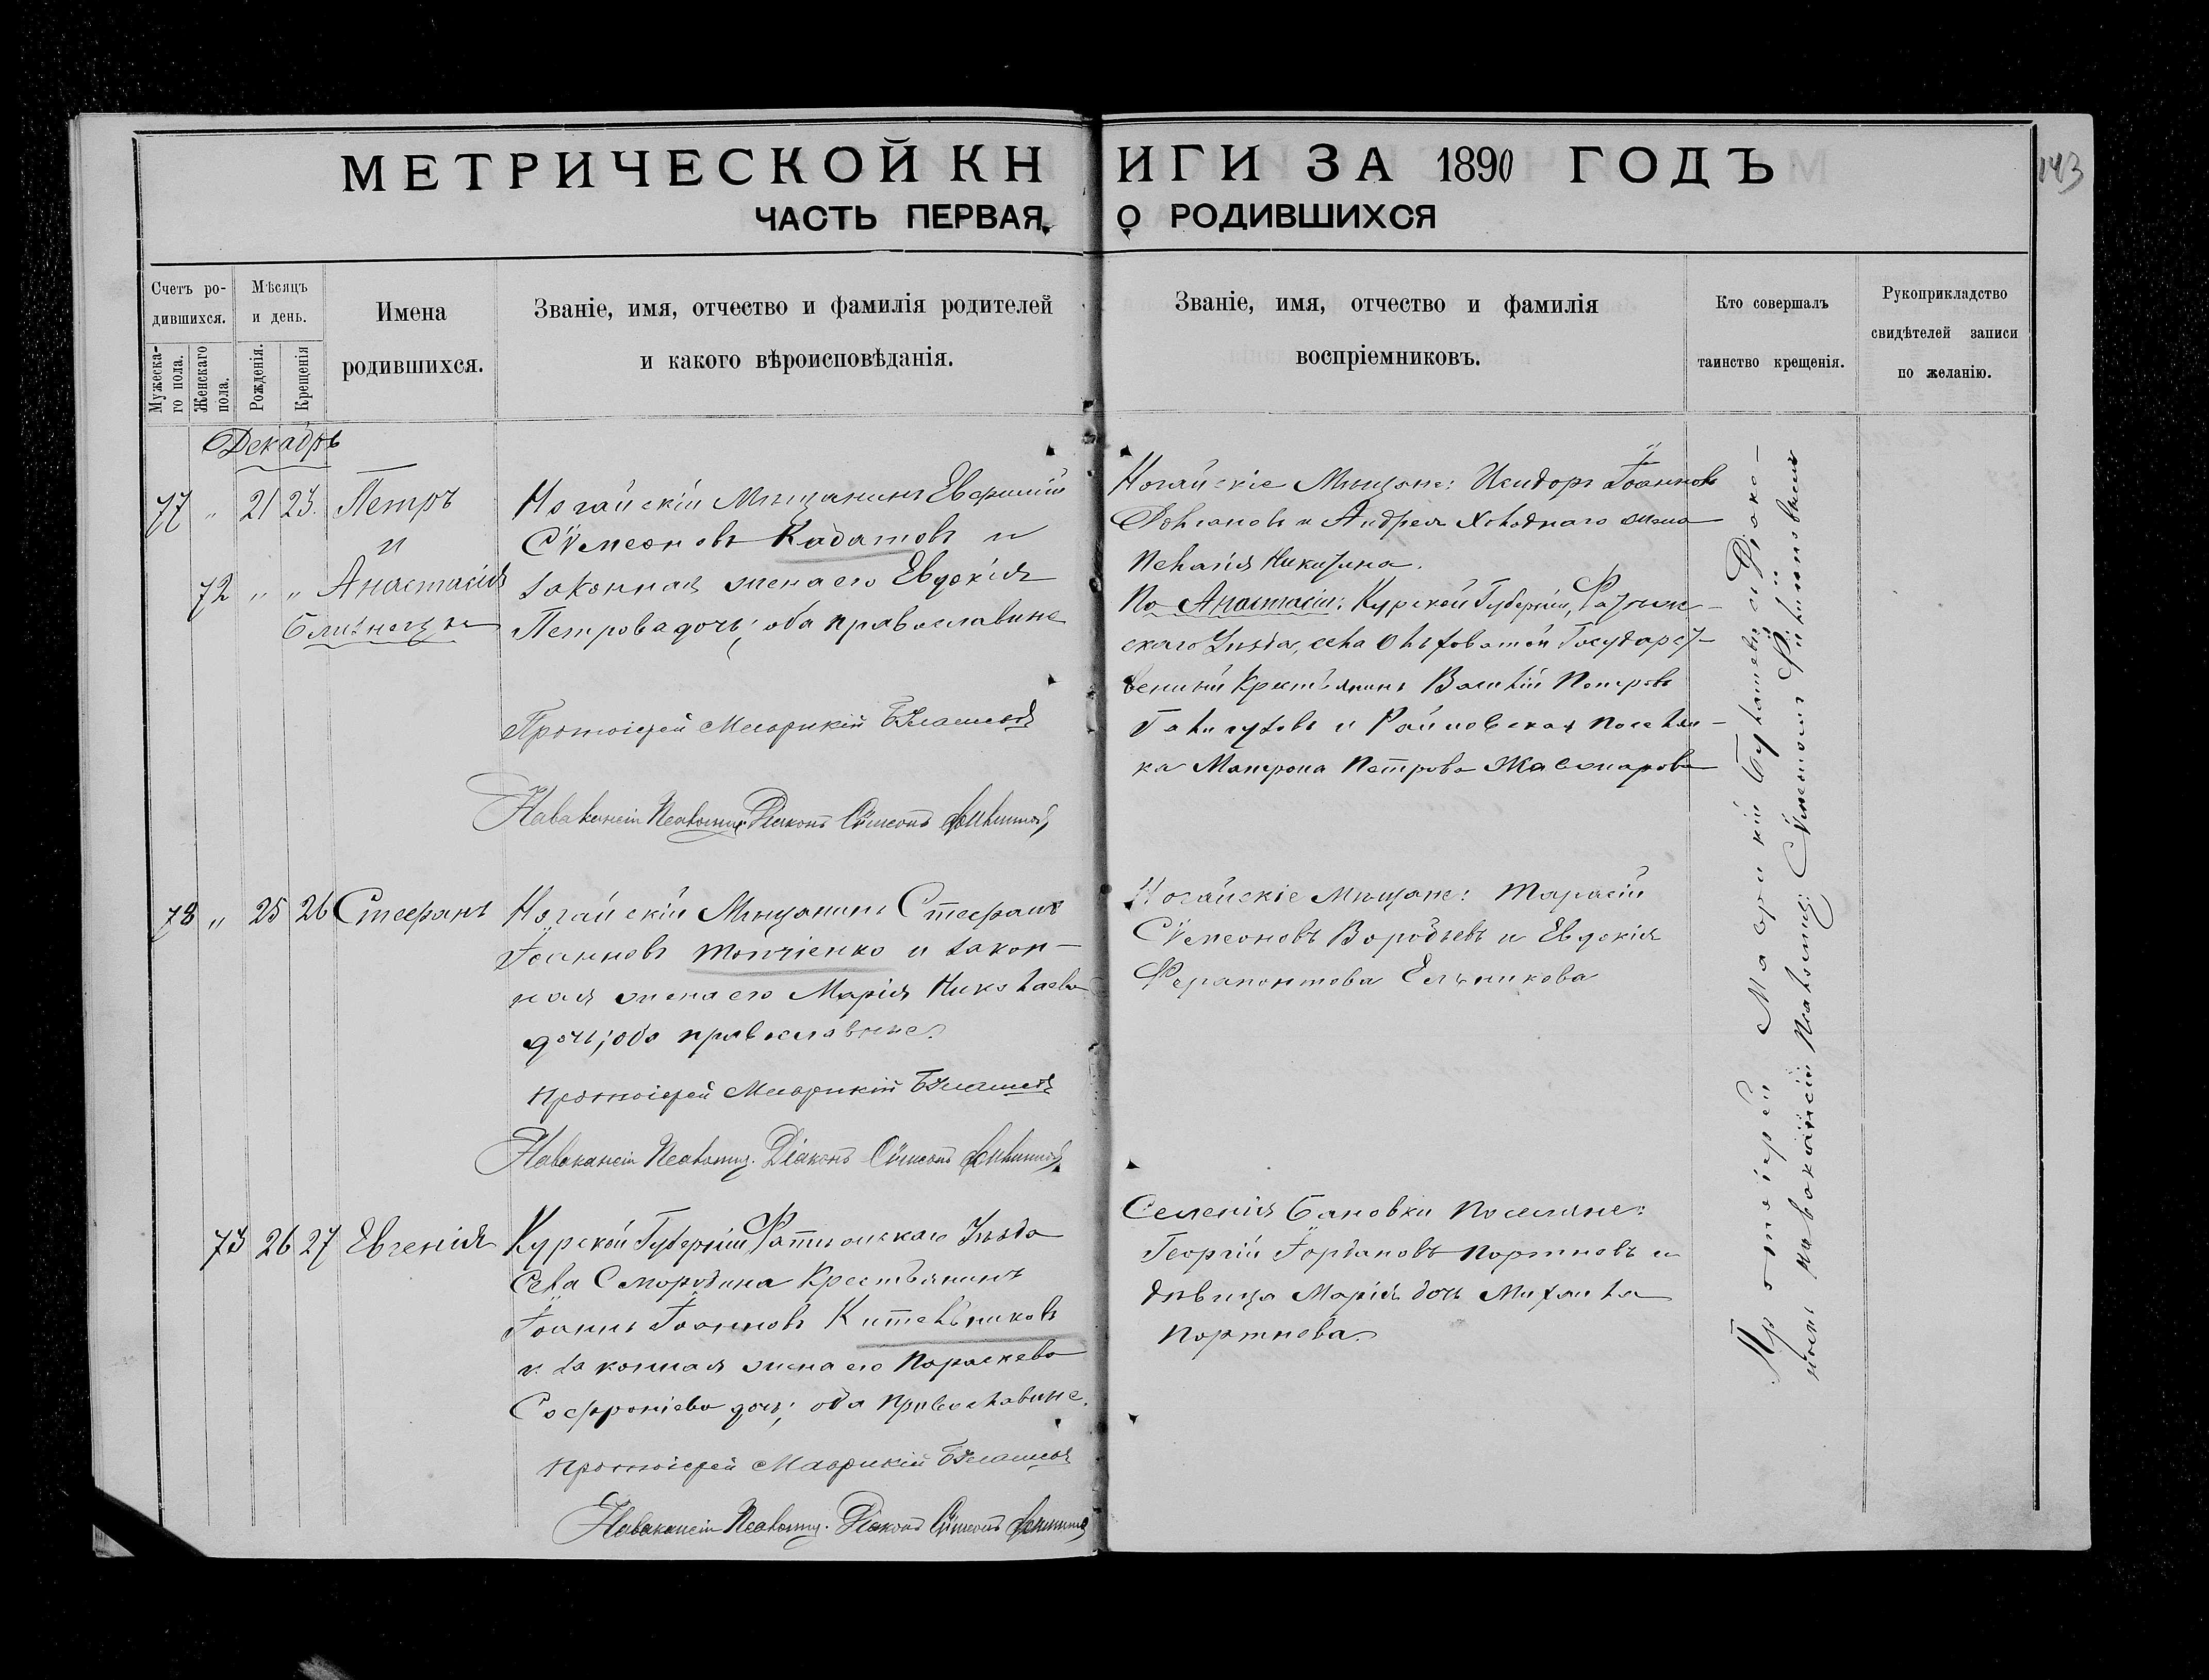 МЕТРИЧЕСКОЙ КНИГИ ЗА 1890 ГОДЪ
143
ЧАСТЬ ПЕРВАЯ, О РОДИВШИХСЯ
Счетъ ро-
дившихся.
Мужеска-
го пола.
Женскаго
пола.
Мѣсяцъ
и день.
Рожденія.
Крещенія
Имена
родившихся.
Званіе, имя, отчество и фамилія родителей
и какого вѣроисповѣданія.
Званіе, имя, отчество и фамилія
воспріемниковъ.
Кто совершалъ
таинство крещенія.
Рукоприкладство
свидѣтелей записи
по желанію.
Декабрь
77 " 21 23. Петръ
и
72 " " Анастасія
близнецы
Ногайскій Мѣщанинъ Евфимій
Сѵмеоновъ Кадатовъ и
законная жена его Евдокія
Петрова дочь; оба православные
Протоіерей Маврикій
Навакансіи Псаломщ. Діаконъ Сѵмеонъ
Ногайскіе Мѣщане: Исидоръ Іоанновъ
и Андрея Холоднаго жена
Пелагія Никитина.
По Анастасіи: Курской Губерніи,
скаго Уѣзда, села Ольховатой Государст-
венный Крестьянинъ Василій Петровъ
и Райновская поселян-
ка Матрона Петрова
78 " 25 26 Стефанъ
Ногайскій Мѣщанинъ Стефанъ
Іоанновъ Топчіенко и закон-
ная жена его Марія Николаева
дочь; оба православные.
Протоіерей Маврикій
Навакансіи Псаломщ. Діаконъ Сѵмеонъ
Ногайскіе Мѣщане: Тарасій
Сѵмеоновъ Воробьевъ и Евдокія
Ферапонтова Ельникова
73 26 27 Евгенія
Курской Губерніи Уѣзда
Села Смородина Крестьянинъ
Іоаннъ Іоанновъ Кительниковъ
и законная жена его Параскева
Софроніева дочь; оба православные.
Протоіерей Маврикій
Навакансіи Псаломщ. Діаконъ Сѵмеонъ
Селенія Бановки Поселяне:
Георгій Іордановъ Портновъ и
дѣвица Марія дочь Михаила
Портнова.
Протоіерей Маврикій съ Діако-
номъ навакансіи Псаломщ: Сѵмеономъ